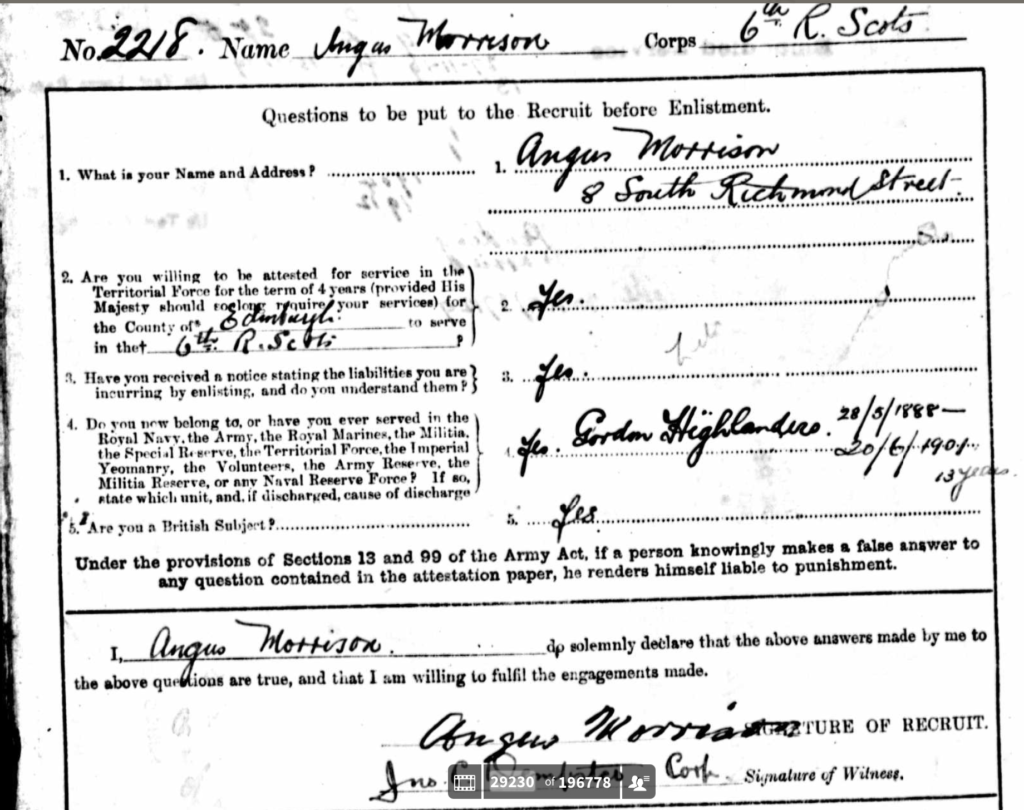 No. 2218. Name Angus Morrison Corps 6th R. Scots
Questions to be put to the Recruit before Enlistment.
1. What is your Name and Address? 1. Angus Morrison
8 South Richmond Street.
2. Are you willing to be attested for service in the
Territorial Force for the term of 4 years (provided His
Majesty should so long require your services) for
the County of* Edinburgh. to serve
in the† 6th R. Scots ?
2. Yes.
3. Have you received a notice stating the liabilities you are
incurring by enlisting, and do you understand them?
3. Yes.
4. Do you now belong to, or have you ever served in the
Royal Navy, the Army, the Royal Marines, the Militia,
the Special Reserve, the Territorial Force, the Imperial
Yeomanry, the Volunteers, the Army Reserve, the
Militia Reserve, or any Naval Reserve Force? If so,
state which unit, and, if discharged, cause of discharge
4. Yes. Gordon Highlanders. 28/5/1888 —
20/6/1901.
13 years.
5. Are you a British Subject? 5. Yes
Under the provisions of Sections 13 and 99 of the Army Act, if a person knowingly makes a false answer to
any question contained in the attestation paper, he renders himself liable to punishment.
I, Angus Morrison. do solemnly declare that the above answers made by me to
the above questions are true, and that I am willing to fulfil the engagements made.
Angus Morrison SIGNATURE OF RECRUIT.
Jno Corp. Signature of Witness.
29230 of 196778